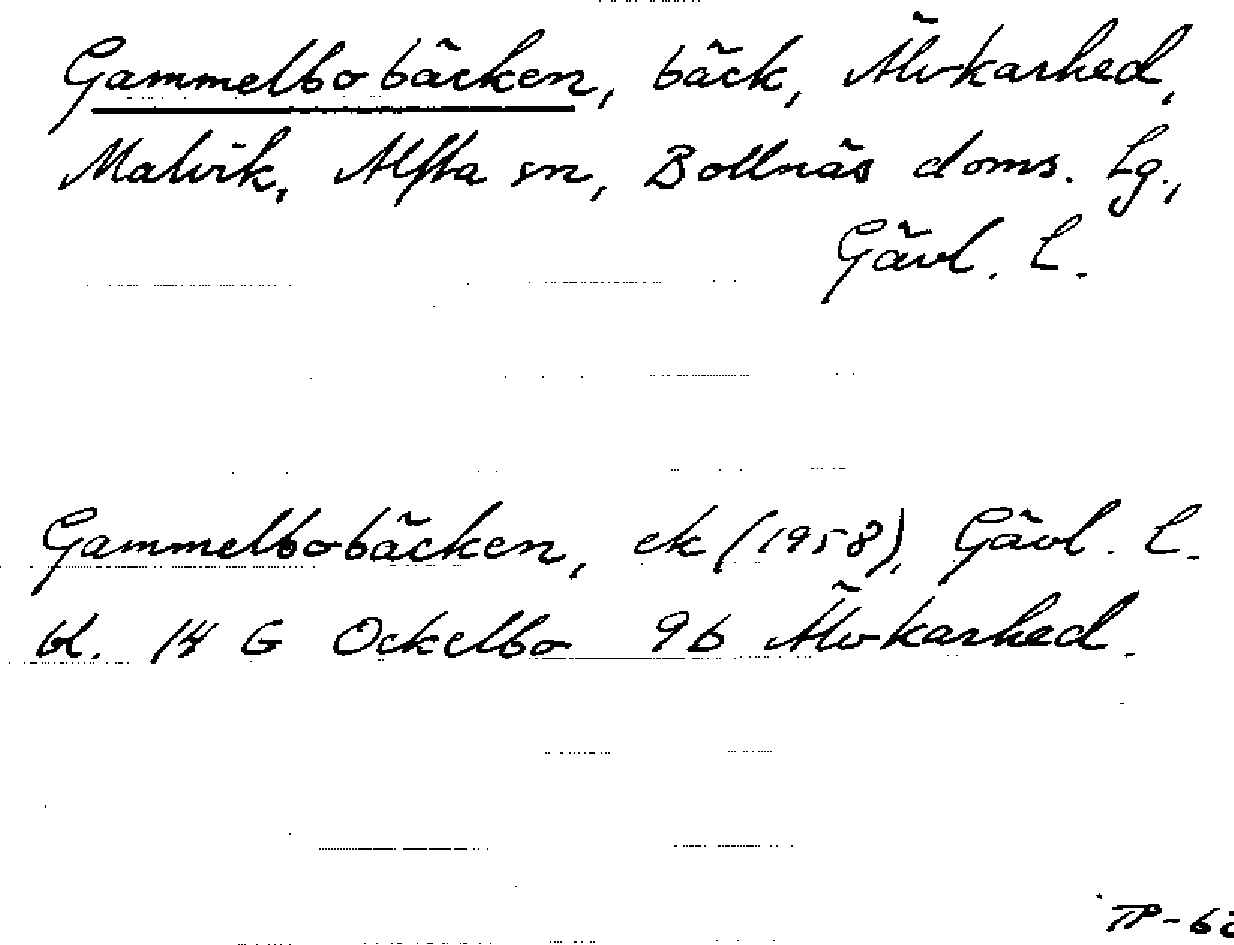 Gammelbobäcken, bäck, Älvkarhed,
Malvik, Alfta sn, Bollnäs doms. Lg.,
Gävl. L.
Gammelbobäcken, ek (1958), Gävl. L.
bl. 14 G Ockelbo 9b Älvkarhed.